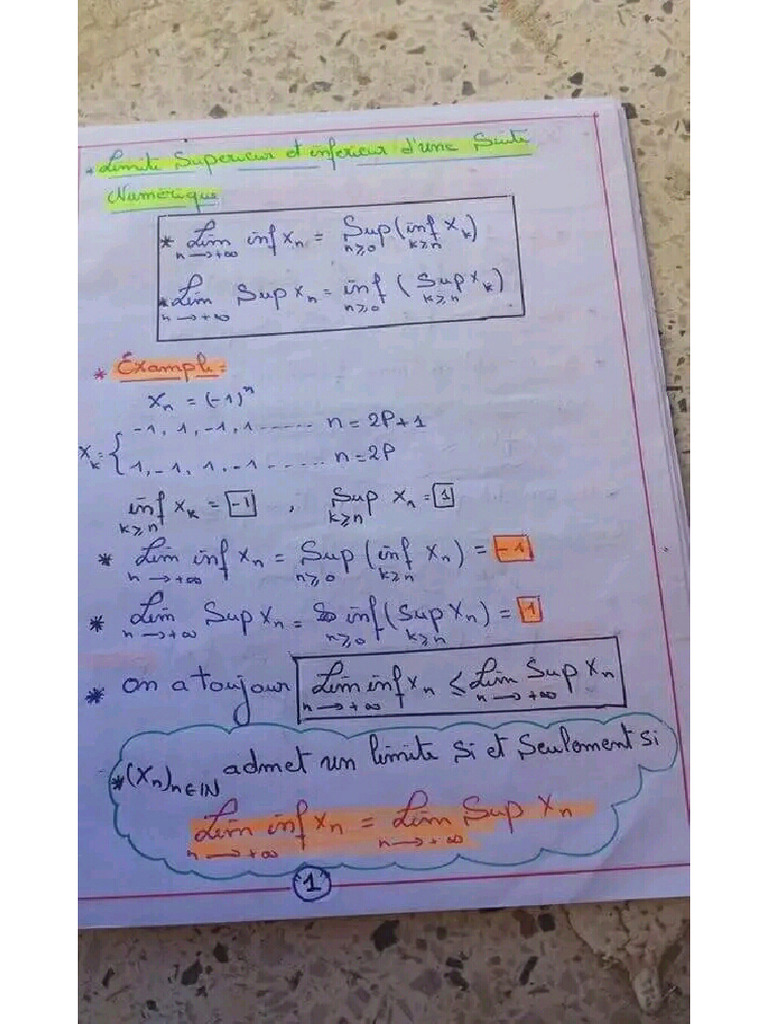 * Limite Superieur et inferieur d'une Suite
Numérique
* Lim inf xn = Sup (inf xk)
n→+∞ n≥0 k≥n
* Lim Sup xn = inf (Sup xk)
n→+∞ n≥0 k≥n
* Éxample:
xn = (-1)^n
xk = { -1, 1, -1, 1 ...... n = 2P+1
1, -1, 1, -1 ...... n = 2P
inf xk = -1 , Sup xn = 1
k≥n k≥n
* Lim inf xn = Sup (inf xn) = -1
n→+∞ n≥0 k≥n
* Lim Sup xn = inf (Sup xn) = 1
n→+∞ n≥0 k≥n
* on a toujour Lim inf xn ≤ Lim Sup xn
n→+∞ n→+∞
* (xn)n∈IN admet un limite si et Seulement si
Lim inf xn = Lim Sup xn
n→+∞ n→+∞
1